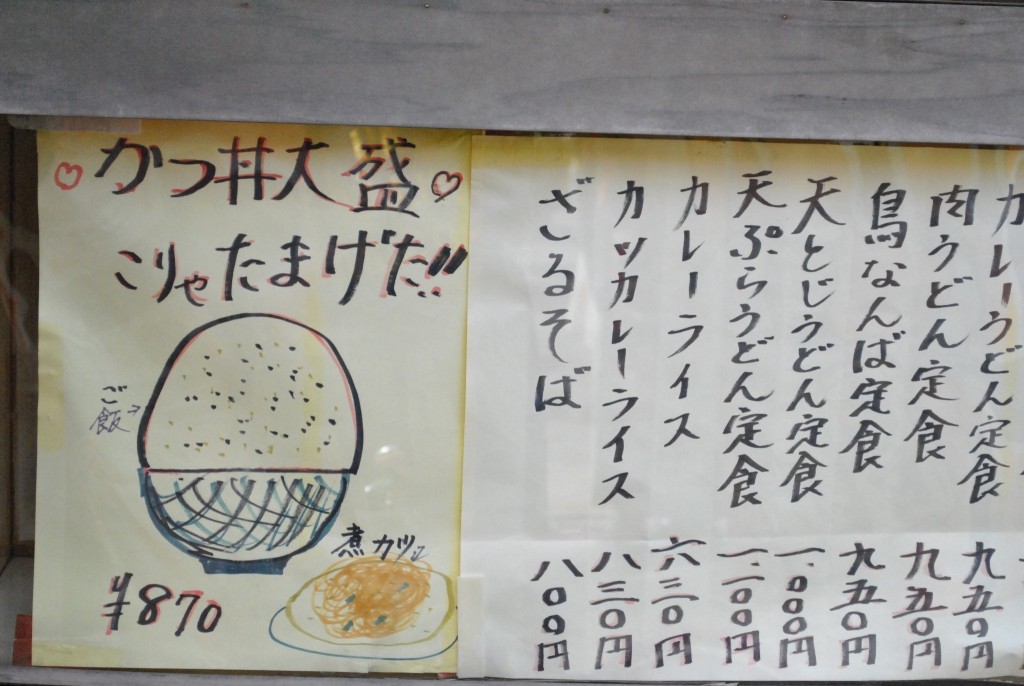 かつ丼大盛
こりゃたまげた!!
ご飯→
煮カツ
¥870
カレーうどん定食 九五〇円
肉うどん定食 九五〇円
鳥なんば定食 九五〇円
天とじうどん定食 一、〇〇〇円
天ぷらうどん定食 一、二〇〇円
カレーライス 六三〇円
カツカレーライス 八三〇円
ざるそば 八〇〇円